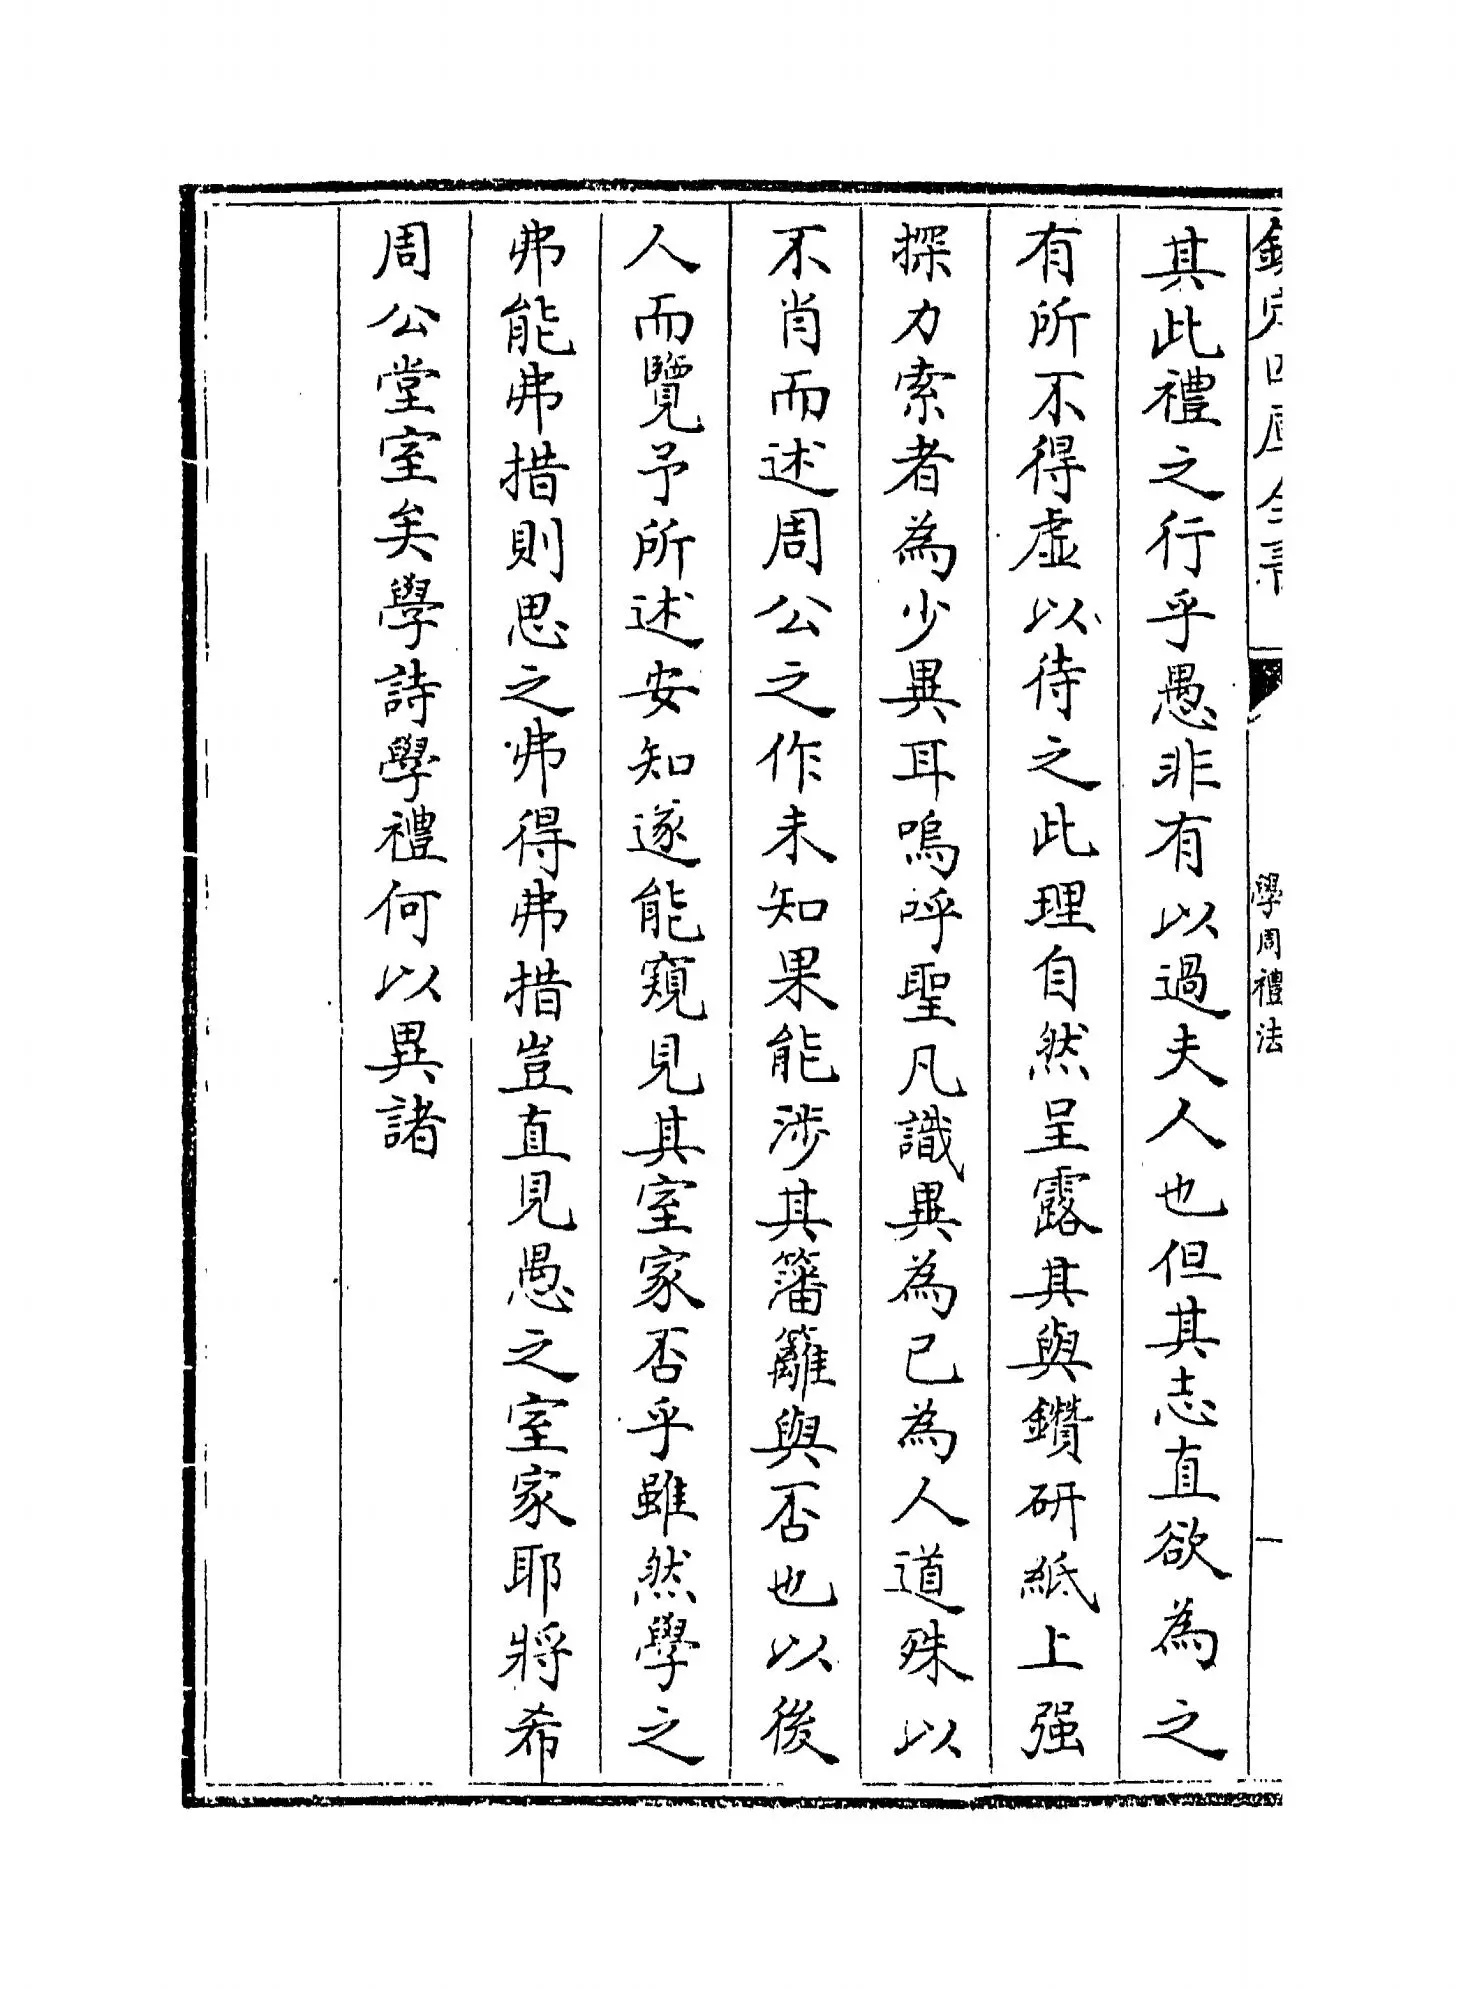 欽定四庫全書
學周禮法
一
其此禮之行乎愚非有以過夫人也但其志直欲為之
有所不得虛以待之此理自然呈露其與鑽研紙上强
探力索者為少異耳嗚呼聖凡識異為已為人道殊以
不肖而述周公之作未知果能涉其籓籬與否也以後
人而覽予所述安知遂能窺見其室家否乎雖然學之
弗能弗措則思之弗得弗措豈直見愚之室家耶將希
周公堂室矣學詩學禮何以異諸